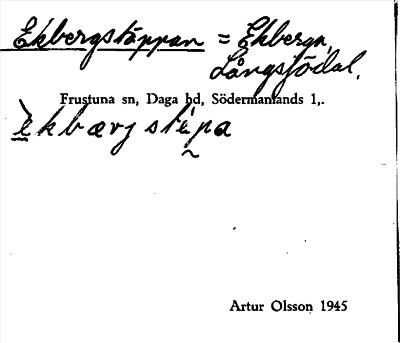 Ekbergstäppan = Ekbergn,
Långsjödal.
Frustuna sn, Daga hd, Södermanlands l,.
ekbærjstepa
Artur Olsson 1945